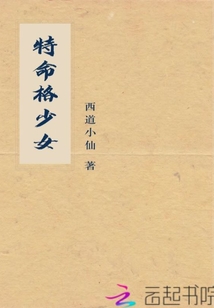 特命格少女
西道小仙 著
云起书院